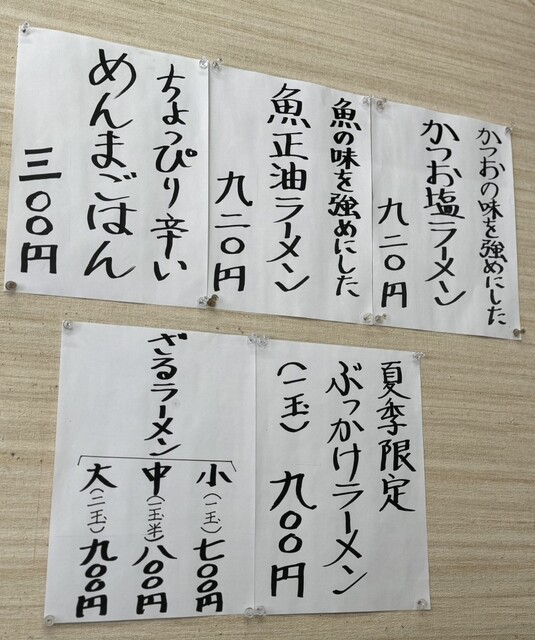 かつおの味を強めにした
かつお塩ラーメン
九二〇円
魚の味を強めにした
魚正油ラーメン
九二〇円
ちょっぴり辛い
めんまごはん
三〇〇円
夏季限定
ぶっかけラーメン
(一玉) 九〇〇円
ざるラーメン
小(一玉)七〇〇円
中(一玉半)八〇〇円
大(二玉)九〇〇円